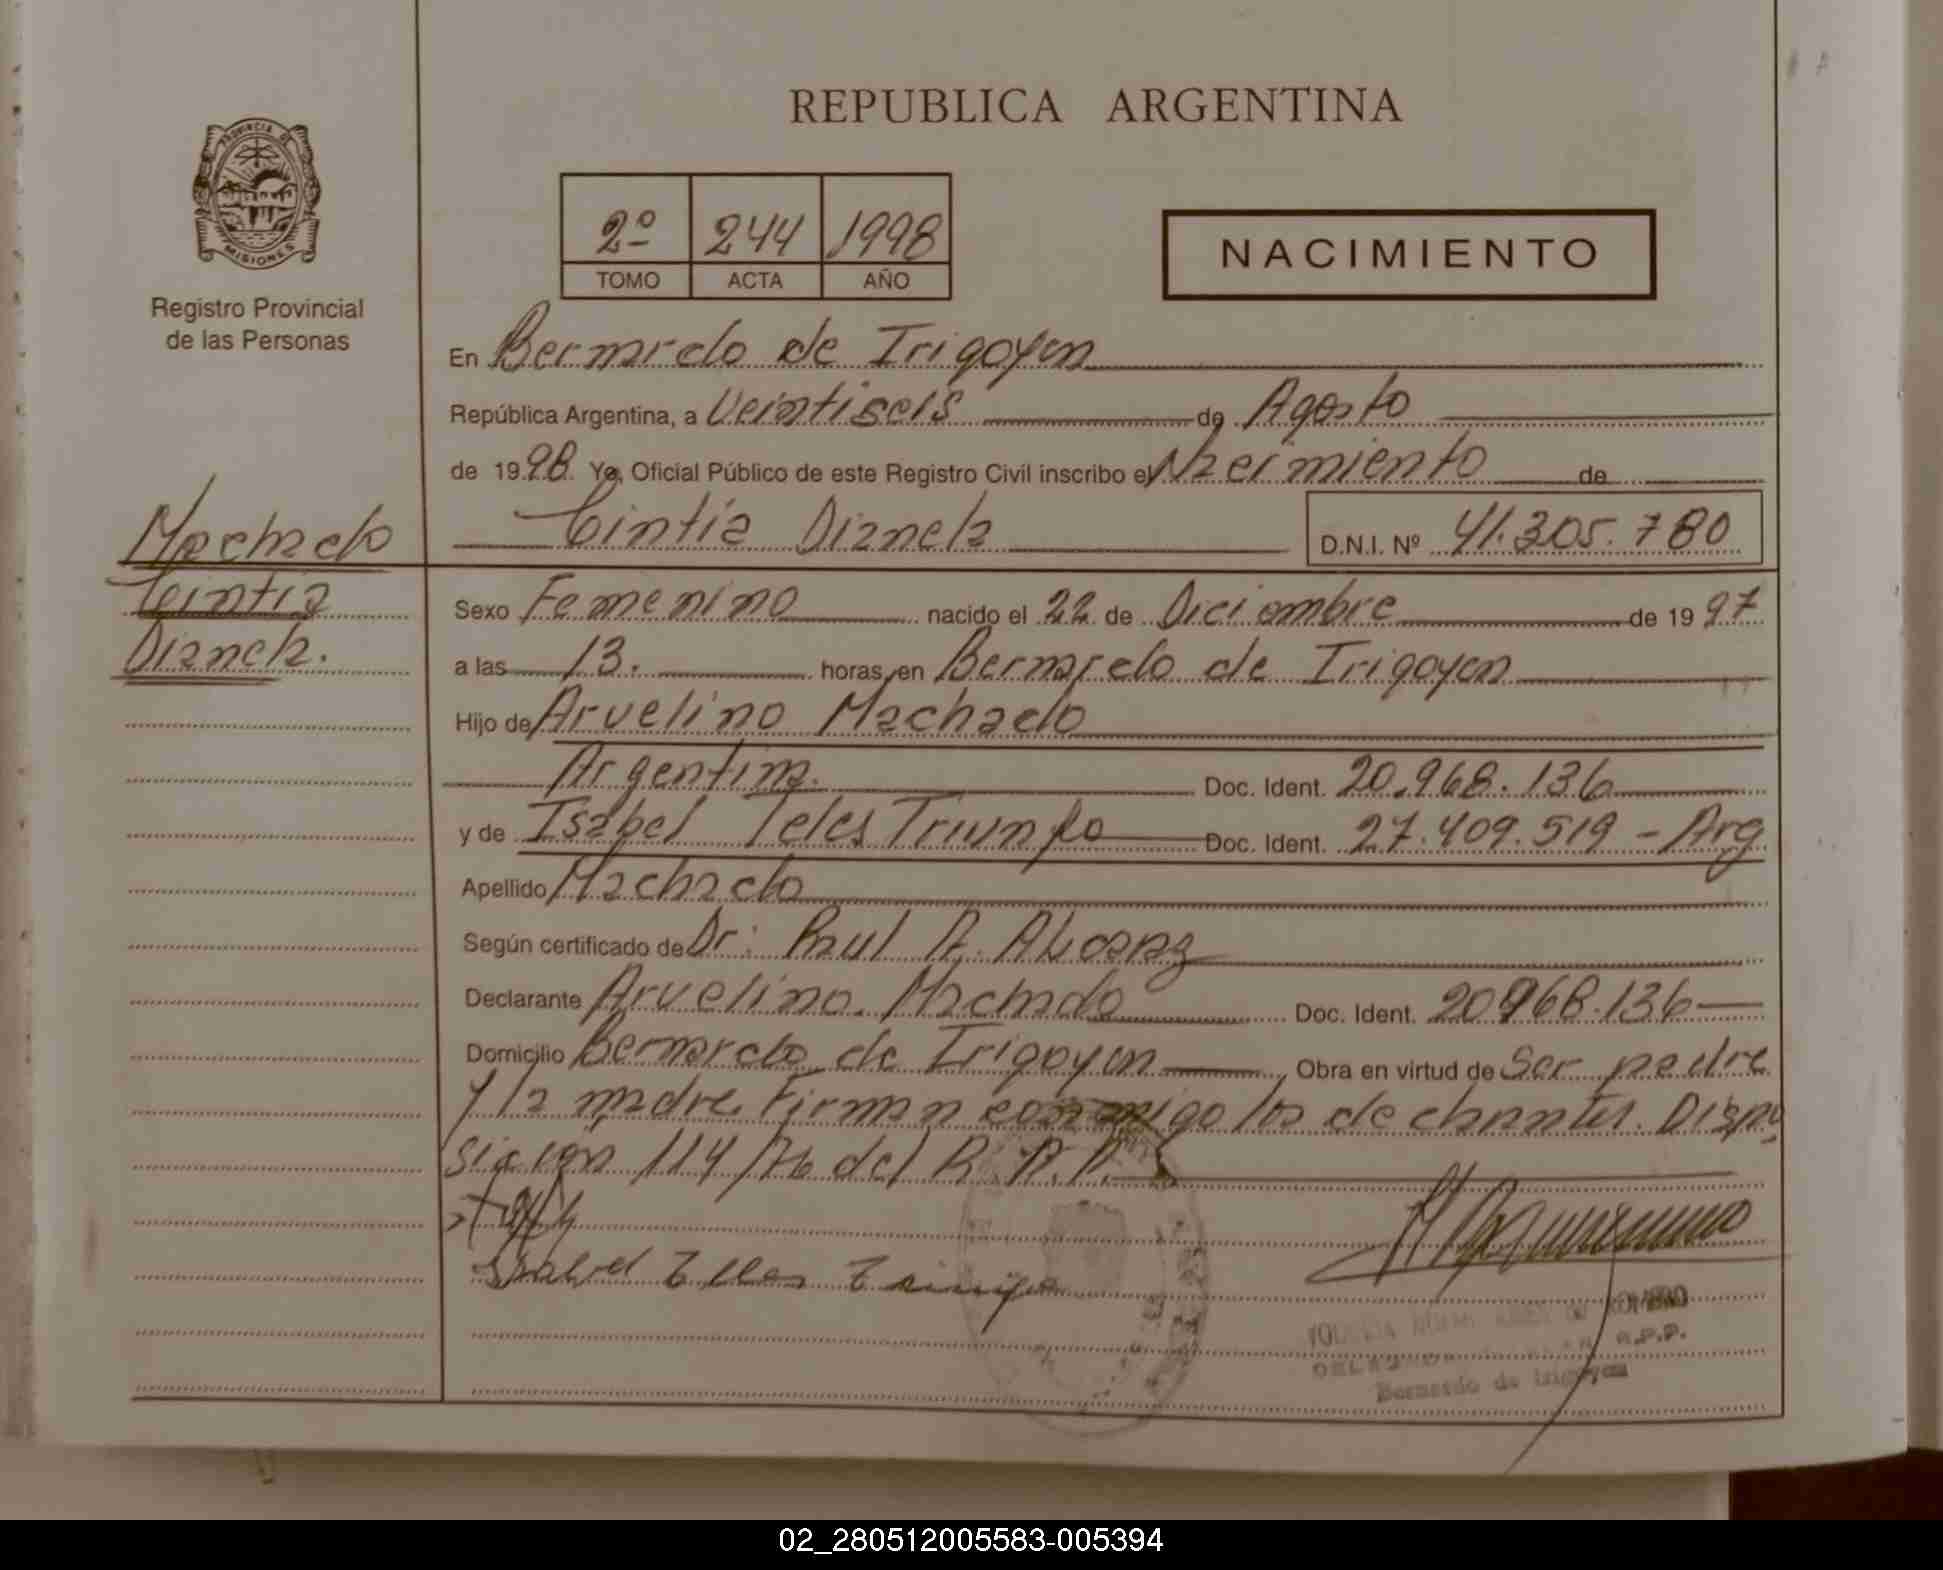 REPUBLICA ARGENTINA
PROVINCIA DE
MISIONES
Registro Provincial
de las Personas
2º 244 1998
TOMO ACTA AÑO
NACIMIENTO
En Bernardo de Irigoyen
República Argentina, a Veintiseis de Agosto
de 1998. Yo, Oficial Público de este Registro Civil inscribo el Nacimiento de
Cintia Dianela D.N.I. Nº 41.305.780
Machado
Cintia
Dianela.
Sexo Femenino nacido el 22 de Diciembre de 1997
a las 13. horas, en Bernardo de Irigoyen
Hijo de Arvelino Machado
Argentina. Doc. Ident. 20.968.136
y de Isabel Teles Triunfo Doc. Ident. 27.409.519 - Arg
Apellido Machado
Según certificado de Dr: Raul A.
Declarante Arvelino Machado Doc. Ident. 20968.136
Domicilio Bernardo de Irigoyen Obra en virtud de Ser padre
y la madre. Firman conmigo los declarantes. Dispo
sicion 114/76 del R.P.P.
Isabel Teles
R.P.P.
Bernardo de Irigoyen
02_280512005583-005394